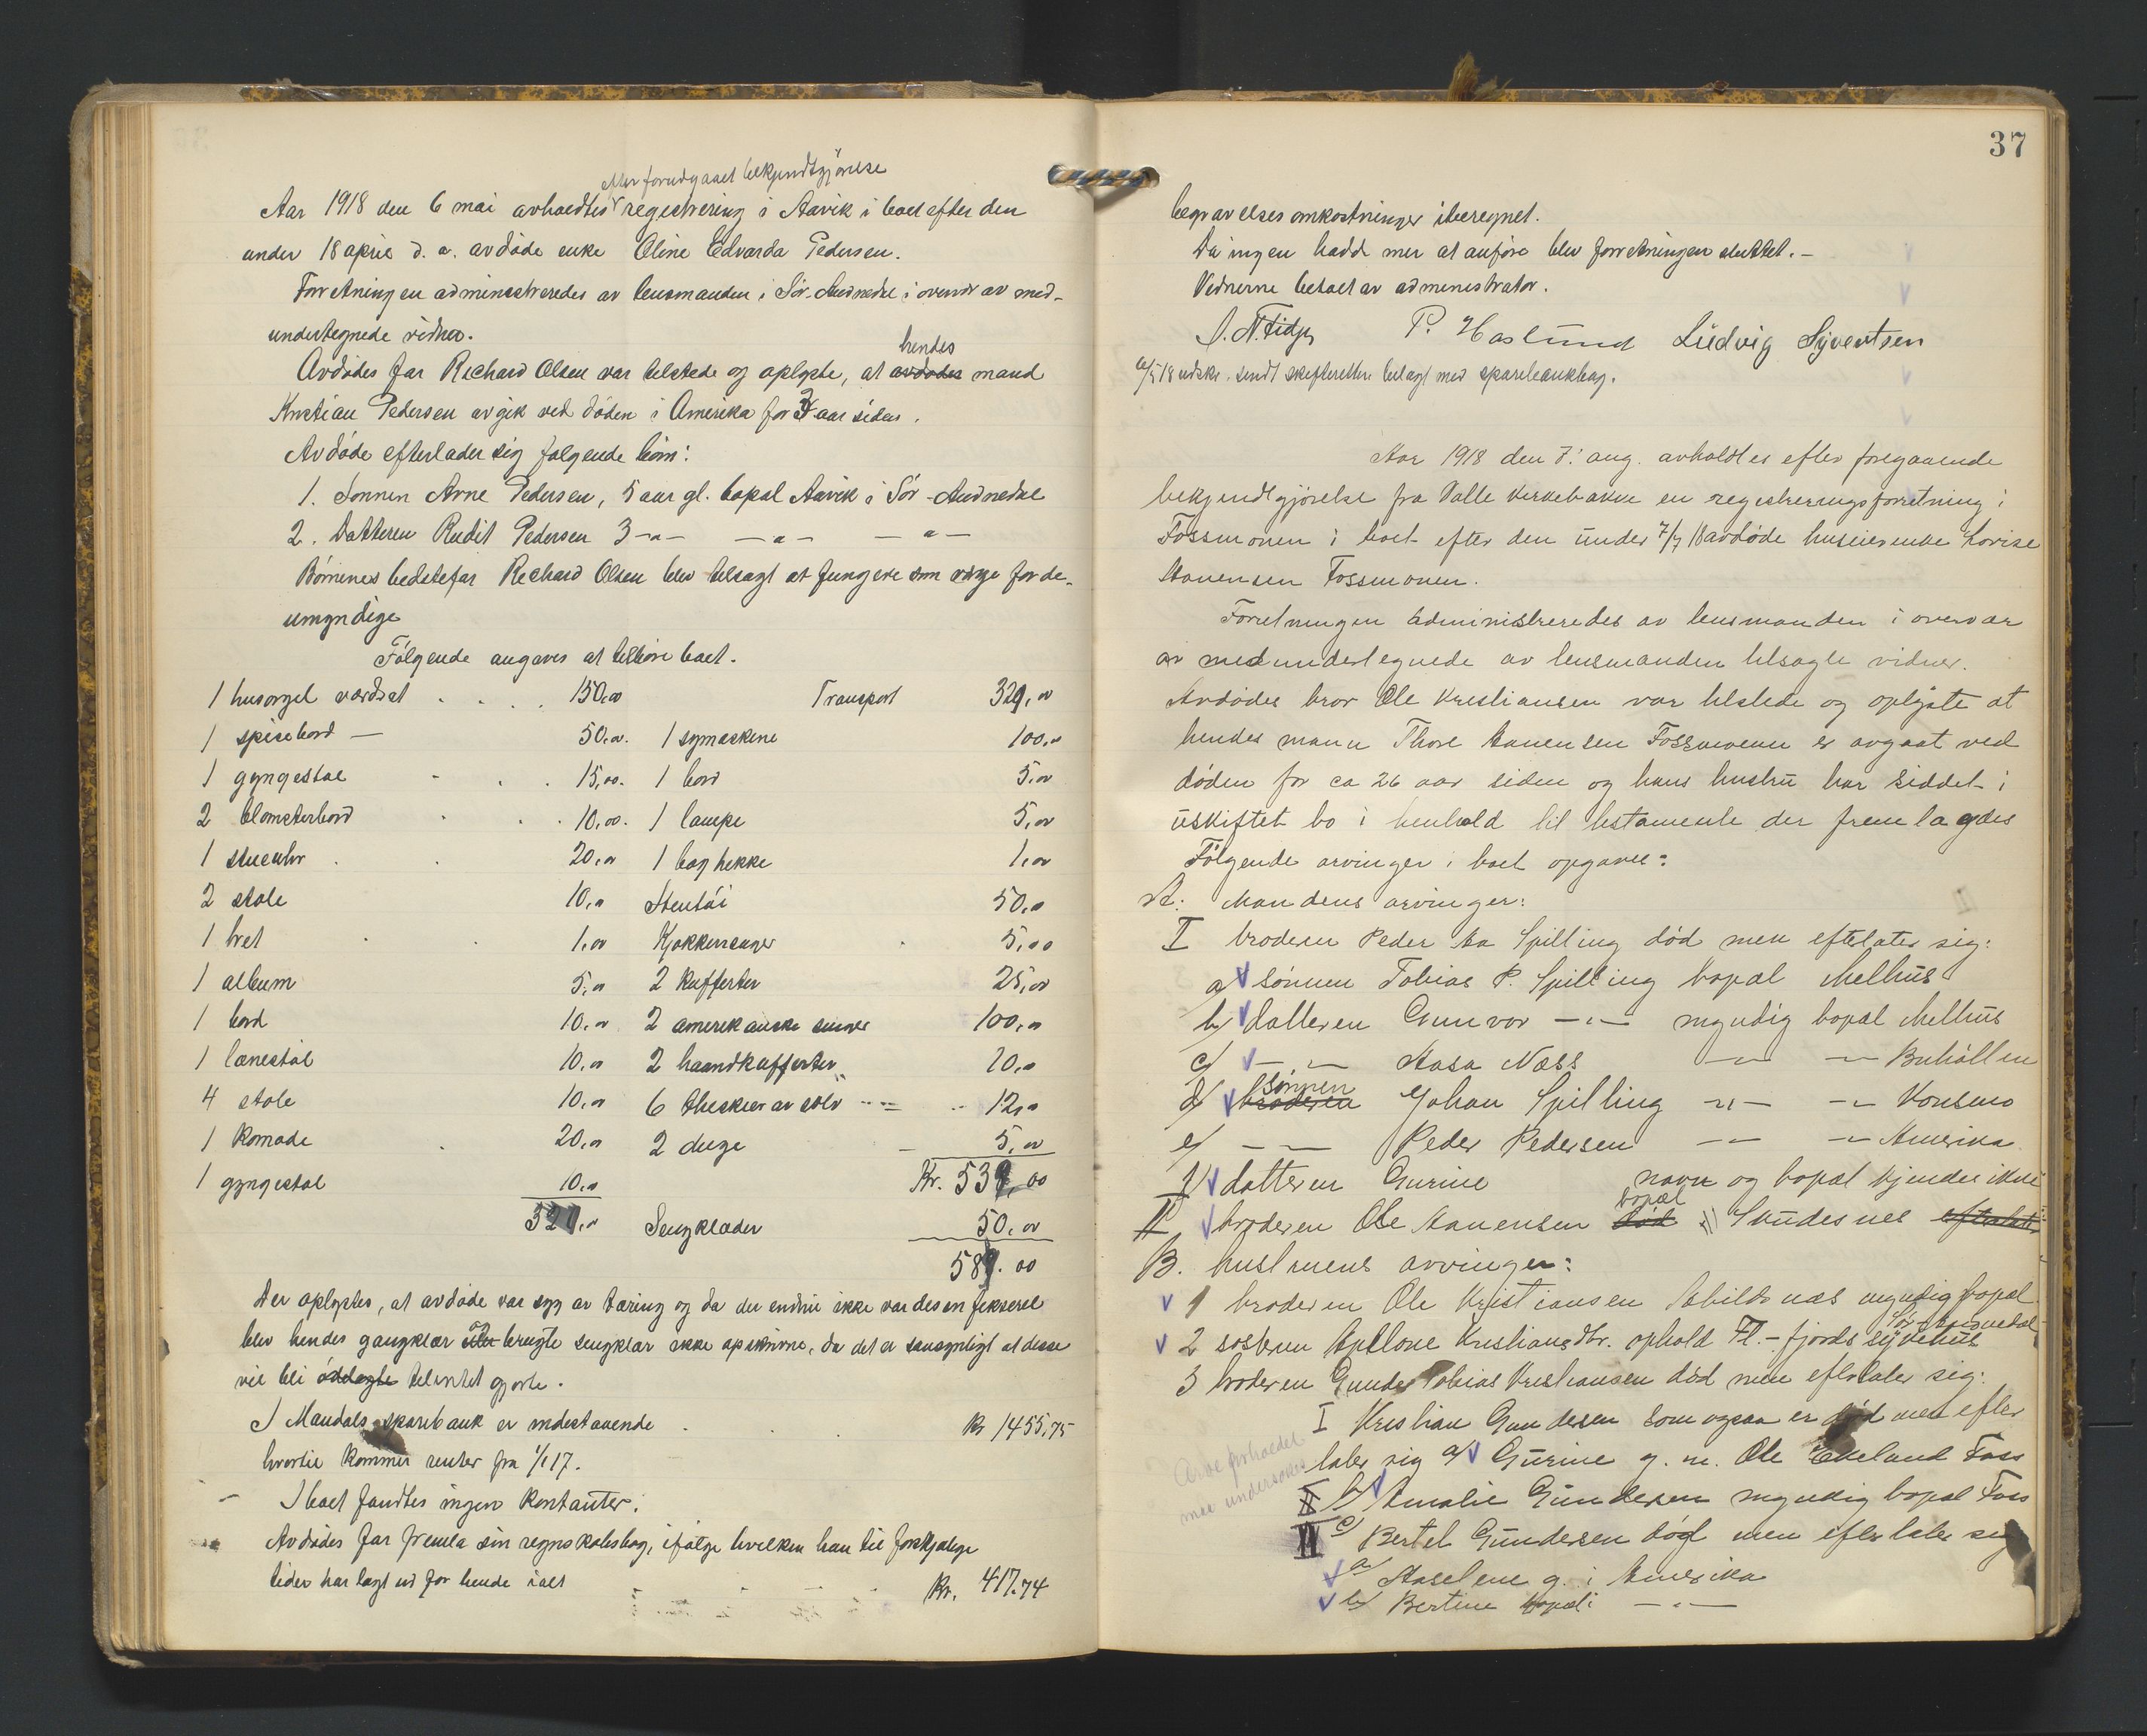 efter forudgaaet bekjendtgjörelse
Aar 1918 den 6 mai avholdtes registrering i Aavik i boet efter den
under 18 april d. a. avdöde enke Oline Edvarda Pedersen.
Forretningen administreredes av lensmanden i Sör-Audnedal i overvær av med-
undertegnede vidner.
hendes
Avdödes far Richard Olsen var tilstede og oplyste, at avdödes mand
Kristian Pedersen avgik ved döden i Amerika for aar siden.
Avdöde efterlader sig følgende börn:
1. Sönnen Arne Pedersen, 5 aar gl. bopæl Aavik i Sör-Audnedal
2. Datteren Rudit Pedersen 3 -"- -"- -"-
Börnenes bedstefar Richard Olsen blev tilsagt at fungere som værge for de
umyndige
Følgende angaves at tilhöre boet.
1 husorgel værdsat 150,00 Transport 321,00
1 spisebord — 50,00. 1 symaskine 100,00
1 gyngestol 15,00. 1 bord 5,00
2 blomsterbord 10,00. 1 lampe 5,00
1 stueuhr 20,00 1 boghekke 1,00
2 stole 10,00 Stentöi 50,00
1 bret 1,00 Kjøkkensager 5,00
1 album 5,00 2 Kufferter 25,00
1 bord 10,00 2 amerikanske 100,00
1 lænestol 10,00 2 haandkufferter 20,00
4 stole 10,00 6 theskeer av sölv 12,00
1 Komode 20,00 2 duge 5,00
1 gyngestol 10,00 Kr. 539,00
321,00 Sengklæder 50,00
589.00
Der oplystes, at avdöde var syg av tæring og da der endnu ikke var desinfiseret
og
blev hendes gangklær eller brugte sengklær ikke opskrivne, da det er sansynligt at desse
vil bli ödelagte tilintetgjorte.
I Mandals sparebank er indestaaende Kr 1455,75
hvortil kommer renter fra 1/1 17.
I boet fandtes ingen kontanter.
Avdödes far fremla sin regnskabsbog, ifölge hvilken han til forskjelige
tider har lagt ut for hende ialt Kr. 417.74
37
begravelses omkostninger iberegnet.
Da ingen hadde mer at anföre blev forretningen sluttet. –
Vidnerne betalt av administrator.
P. Haslund Ludvig Syvertsen
/5 18 utskr. sendt skifteretten bilagt med sparebankbog.
Aar 1918 den 7. aug. avholdtes efter foregaaende
bekjendtgjörelse fra Valle Kirkebakke en registreringsforretning i
Fossmonen i boet efter den under 7/7 18 avdöde huseierenke Lovise
Aanensen Fossmonen.
Forretningen administreredes av lensmanden i overvær
av medundertegnede av lensmanden tilsagte vidner.
Avdödes bror Ole Kristiansen var tilstede og oplyste at
hendes mann Thore Aanensen Fossmonen er avgaat ved
döden for ca 26 aar siden og hans hustru har siddet i
uskiftet bo i henhold til testamente der fremlagdes
Følgende arvinger i boet opgaves:
A: Mandens arvinger:
I broderen Peder Aa Spilling död men efterlater sig:
a/ sönnen Tobias P. Spilling bopæl Melhus
b/ datteren Gunvor -"- myndig bopæl Melhus
c/ -"- Aasa Næss -"- -"- Buhöllen
sönnen
d/ broderen Johan Spilling -"- -"- Konsmo
e/ -"- Peder Pedersen -"- -"- Amerika
f/ datteren Gurine navn og bopæl kjender ikke
bopæl
II broderen Ole Aanensen död i Skudesnes efterlater
B. hustruens arvinger:
1 broderen Ole Kristiansen Skildsnæs myndig bopæl
Sör-Audnedal
2 söstren Kristiansdtr. ophold Fl.-fjords sykehus
3 broderen Gunder Tobias Kristiansen död men efterlater sig:
I Kristian Gundersen som ogsaa er död men efter
later sig a/ Gurine g. m. Ole Ekeland Foss
Arveforholdet
maa undersökes
II b/ Amalie Gundersen myndig bopæl Foss
II c/ Bertel Gundersen död men efterlater sig
a/ Aaselene g. i Amerika
b/ Bertine bopæl i -"-